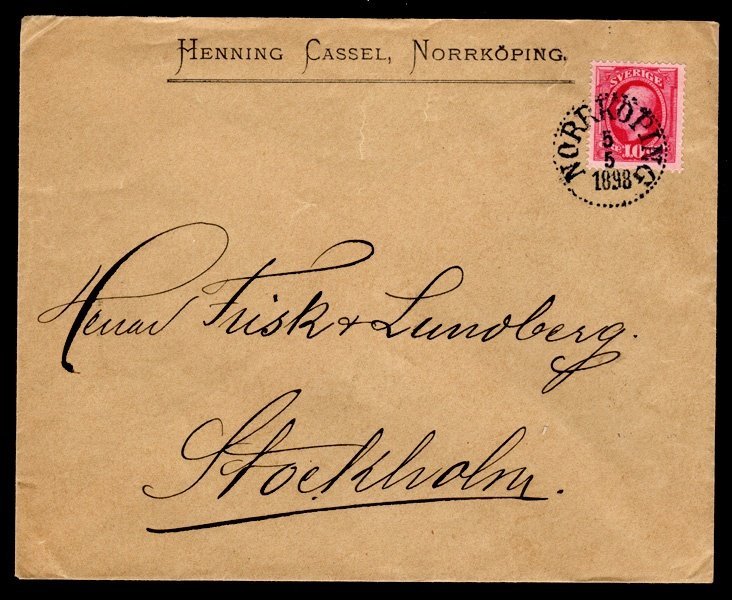 HENNING CASSEL, NORRKÖPING.
SVERIGE
10
NORRKÖPING
5
5
1898
Herrar Frisk & Lundberg.
Stockholm.